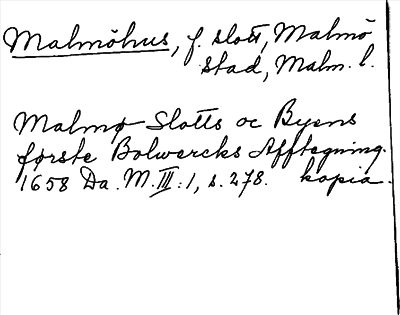 Malmöhus, f. slott, Malmö
stad, Malm. l.
Malmø Slotts oc Byens
første Bolwercks Afftegning.
1658 Da. M. III:1, s. 278. kopia.